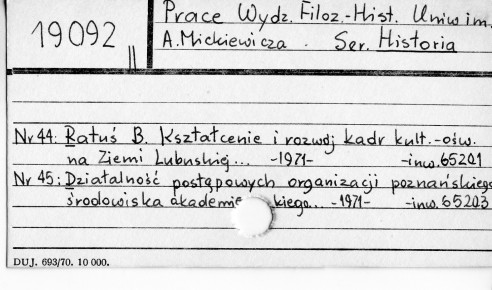 Prace Wydz. Filoz.-Hist. Uniw im.
19092 II A. Mickiewicza. Ser. Historia
Nr 44: Ratuś B. Kształcenie i rozwój kadr kult.-ośw.
na Ziemi Lubuskiej... -1971- -inw. 65201
Nr 45: Działalność postępowych organizacji poznańskiego
środowiska akademi kiego... -1971- -inw. 65203
DUJ. 693/70. 10 000.